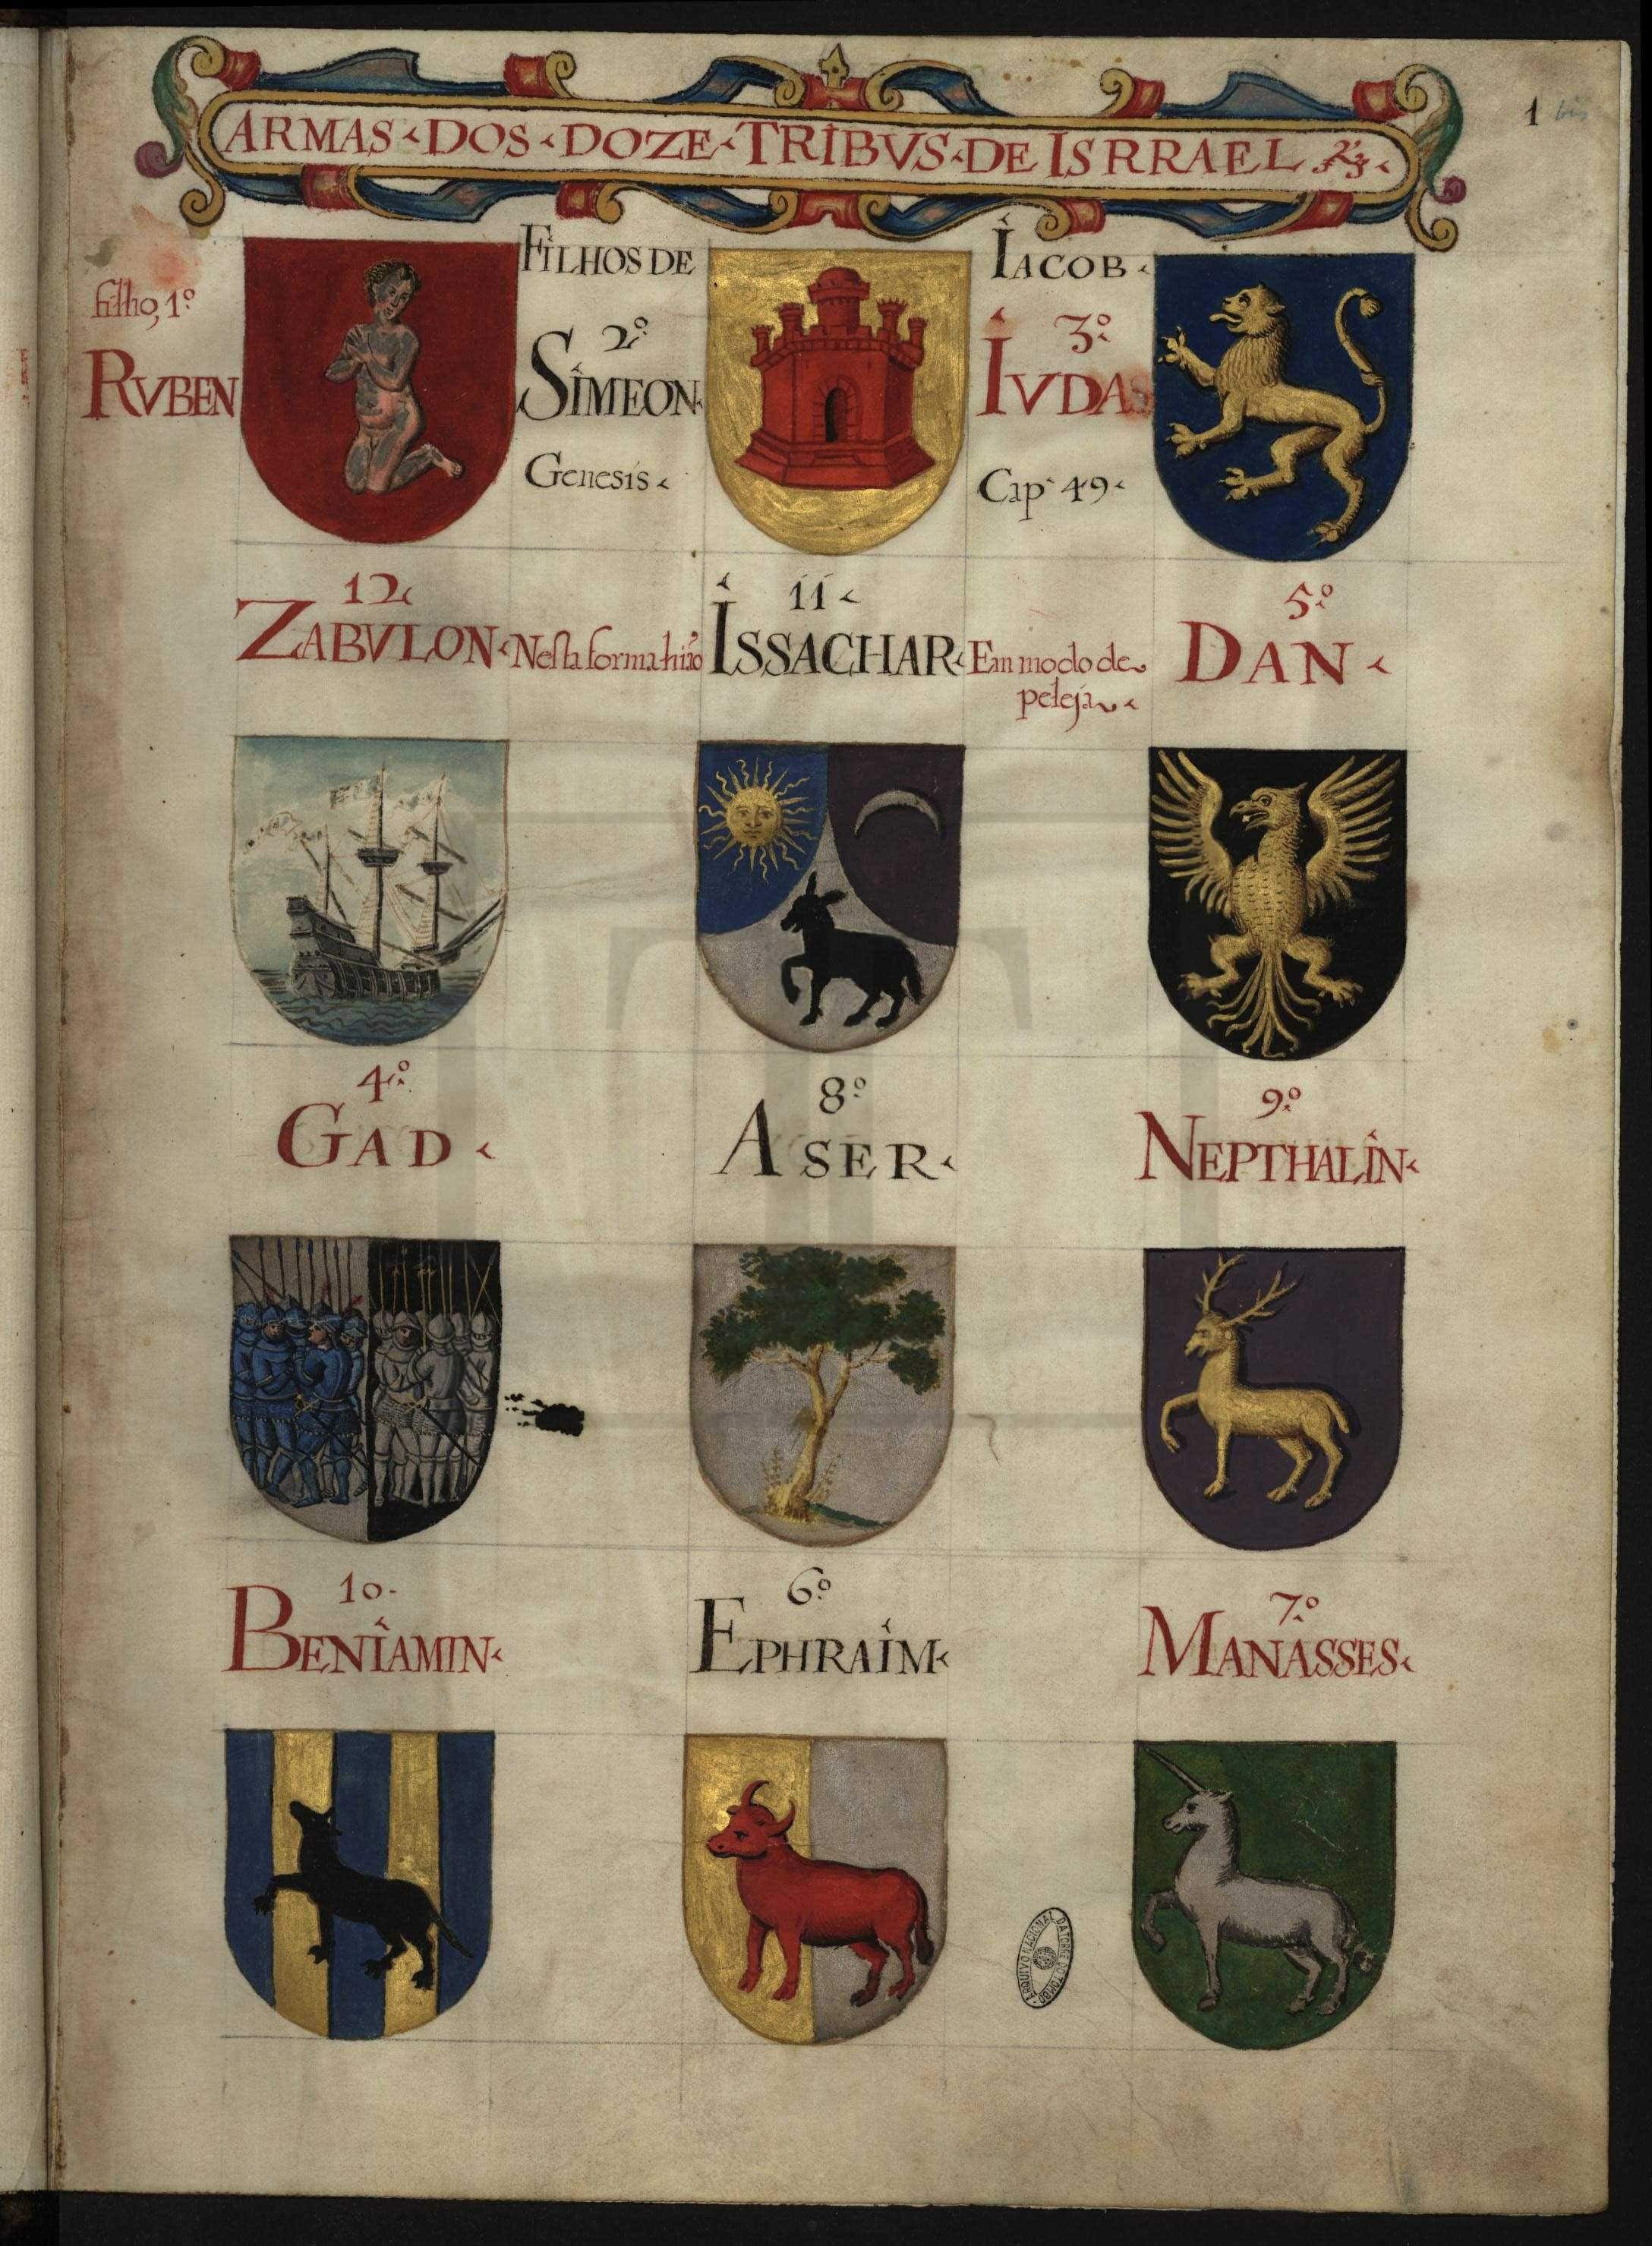 ARMAS DOS DOZE TRIBVS DE ISRRAEL
1 bis
FILHOS DE IACOB
filho, 1º
RVBEN
2º
SIMEON
3º
IVDAS
Genesis
Cap 49
12
ZABVLON
Nesta forma hião
11
ISSACHAR
Em modo de
peleja
5º
DAN
4º
GAD
8º
ASER
9º
NEPTHALIN
10
BENIAMIN
6º
EPHRAIM
7º
MANASSES
ARQUIVO NACIONAL DA TORRE DO TOMBO